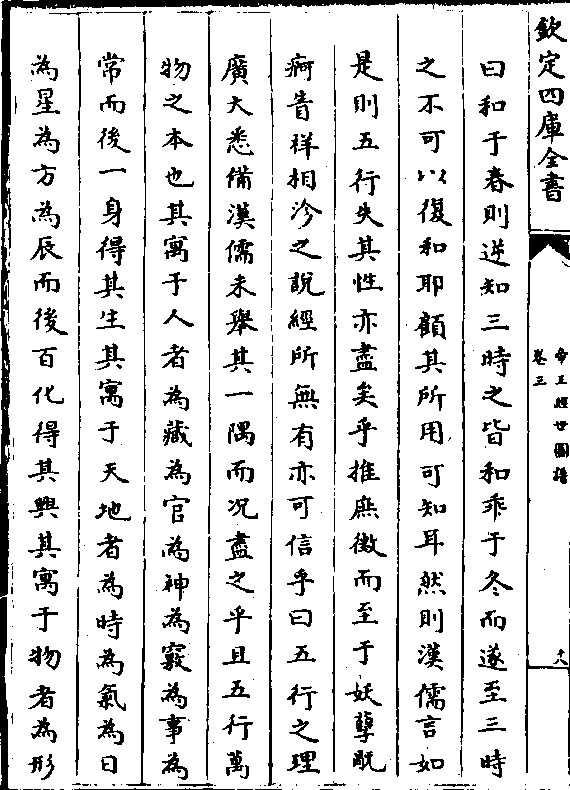 欽定四庫全書
帝王經世圖譜
卷三
十八
曰和于春則逆知三時之皆和乖于冬而遂至三時
之不可以復和耶顧其所用可知耳然則漢儒言如
是則五行失其性亦盡矣乎推庶徵而至于妖孽既
痾眚祥相沴之說經所無有亦可信乎曰五行之理
廣大悉備漢儒未舉其一隅而况盡之乎且五行萬
物之本也其寓于人者為藏為官為神為竅為事為
常而後一身得其生其寓于天地者為時為氣為日
為星為方為辰而後百化得其興其寓于物者為形